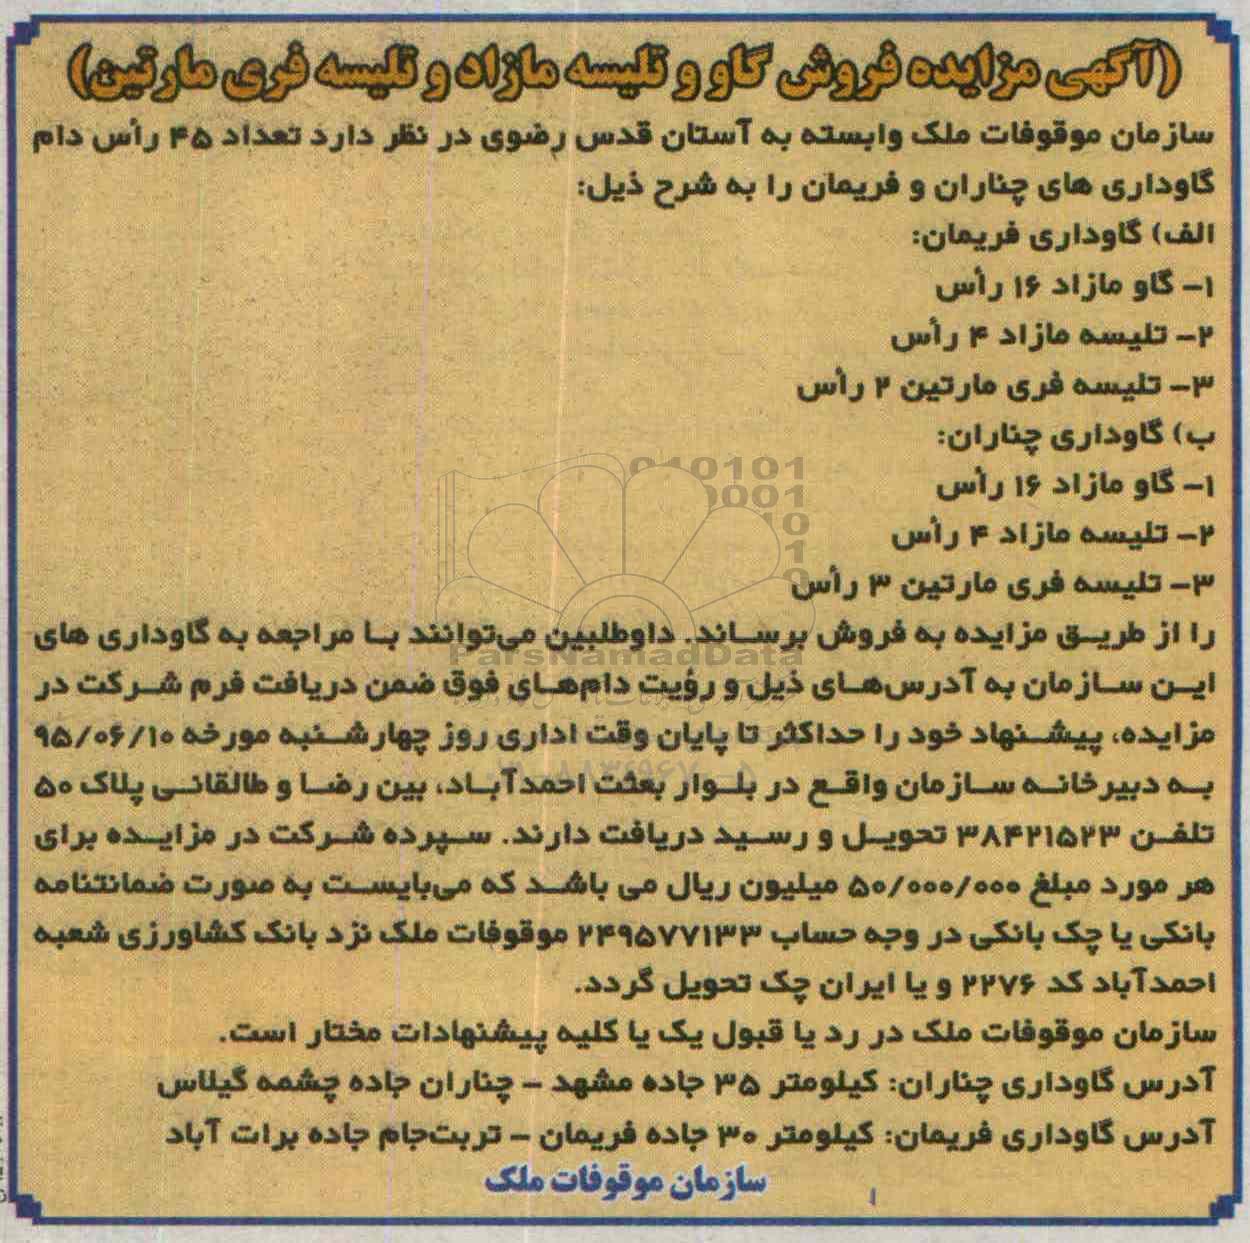 (آگهی مزایده فروش گاو و تلیسه مازاد و تلیسه فری مارتین)
سازمان موقوفات ملک وابسته به آستان قدس رضوی در نظر دارد تعداد ۴۵ رأس دام
گاوداری های چناران و فریمان را به شرح ذیل:
الف) گاوداری فریمان:
۱- گاو مازاد ۱۶ رأس
۲- تلیسه مازاد ۴ رأس
۳- تلیسه فری مارتین ۲ رأس
ب) گاوداری چناران:
۱- گاو مازاد ۱۶ رأس
۲- تلیسه مازاد ۴ رأس
۳- تلیسه فری مارتین ۳ رأس
را از طریق مزایده به فروش برساند. داوطلبین می‌توانند با مراجعه به گاوداری های
این سازمان به آدرس‌های ذیل و رؤیت دام‌های فوق ضمن دریافت فرم شرکت در
مزایده، پیشنهاد خود را حداکثر تا پایان وقت اداری روز چهارشنبه مورخه ۹۵/۰۶/۱۰
به دبیرخانه سازمان واقع در بلوار بعثت احمدآباد، بین رضا و طالقانی پلاک ۵۰
تلفن ۳۸۴۲۱۵۲۳ تحویل و رسید دریافت دارند. سپرده شرکت در مزایده برای
هر مورد مبلغ ۵۰/۰۰۰/۰۰۰ میلیون ریال می باشد که می‌بایست به صورت ضمانتنامه
بانکی یا چک بانکی در وجه حساب ۲۴۹۵۷۷۱۳۳ موقوفات ملک نزد بانک کشاورزی شعبه
احمدآباد کد ۲۲۷۶ و یا ایران چک تحویل گردد.
سازمان موقوفات ملک در رد یا قبول یک یا کلیه پیشنهادات مختار است.
آدرس گاوداری چناران: کیلومتر ۳۵ جاده مشهد - چناران جاده چشمه گیلاس
آدرس گاوداری فریمان: کیلومتر ۳۰ جاده فریمان - تربت‌جام جاده برات آباد
سازمان موقوفات ملک
ParsNamadData